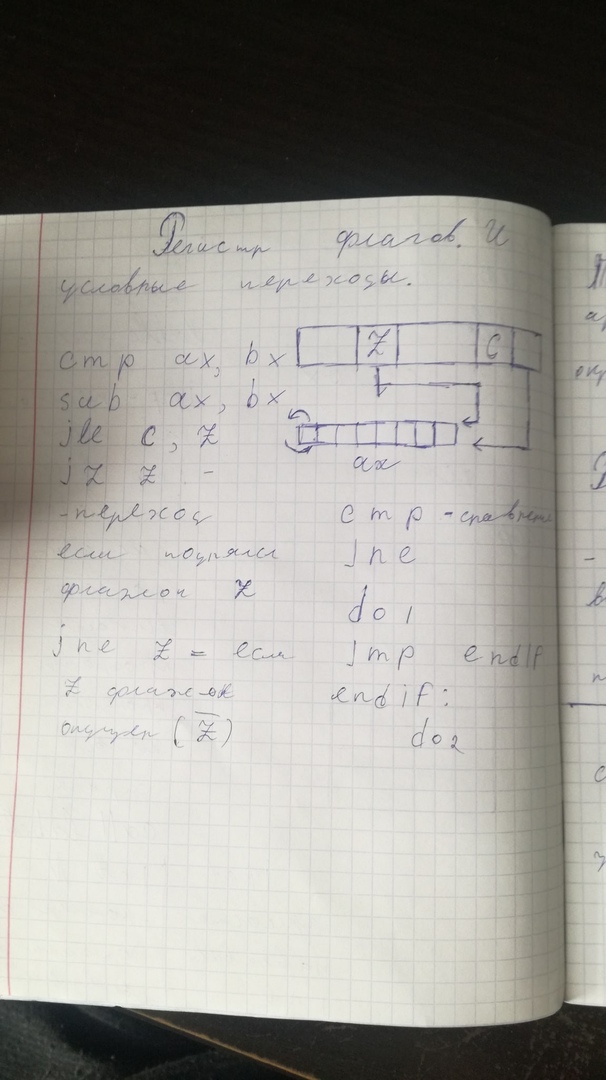 Регистр флагов. И
условные переходы.
Z C
cmp ax, bx
sub ax, bx
jle C, Z
jz Z -
ax
-переход
если поднят
флажок Z
jne Z = если
Z флажок
опущен (Z̅)
cmp - сравнение
jne
do1
jmp endif
endif:
do2